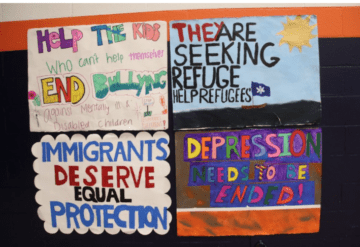 HELP THE KIDS
Who can't help themselves
END
BULLYING
Disabled Children
THEY ARE
SEEKING
REFUGE
HELP REFUGEES
IMMIGRANTS
DESERVE
EQUAL
PROTECTION
DEPRESSION
NEEDS TO BE
ENDED!